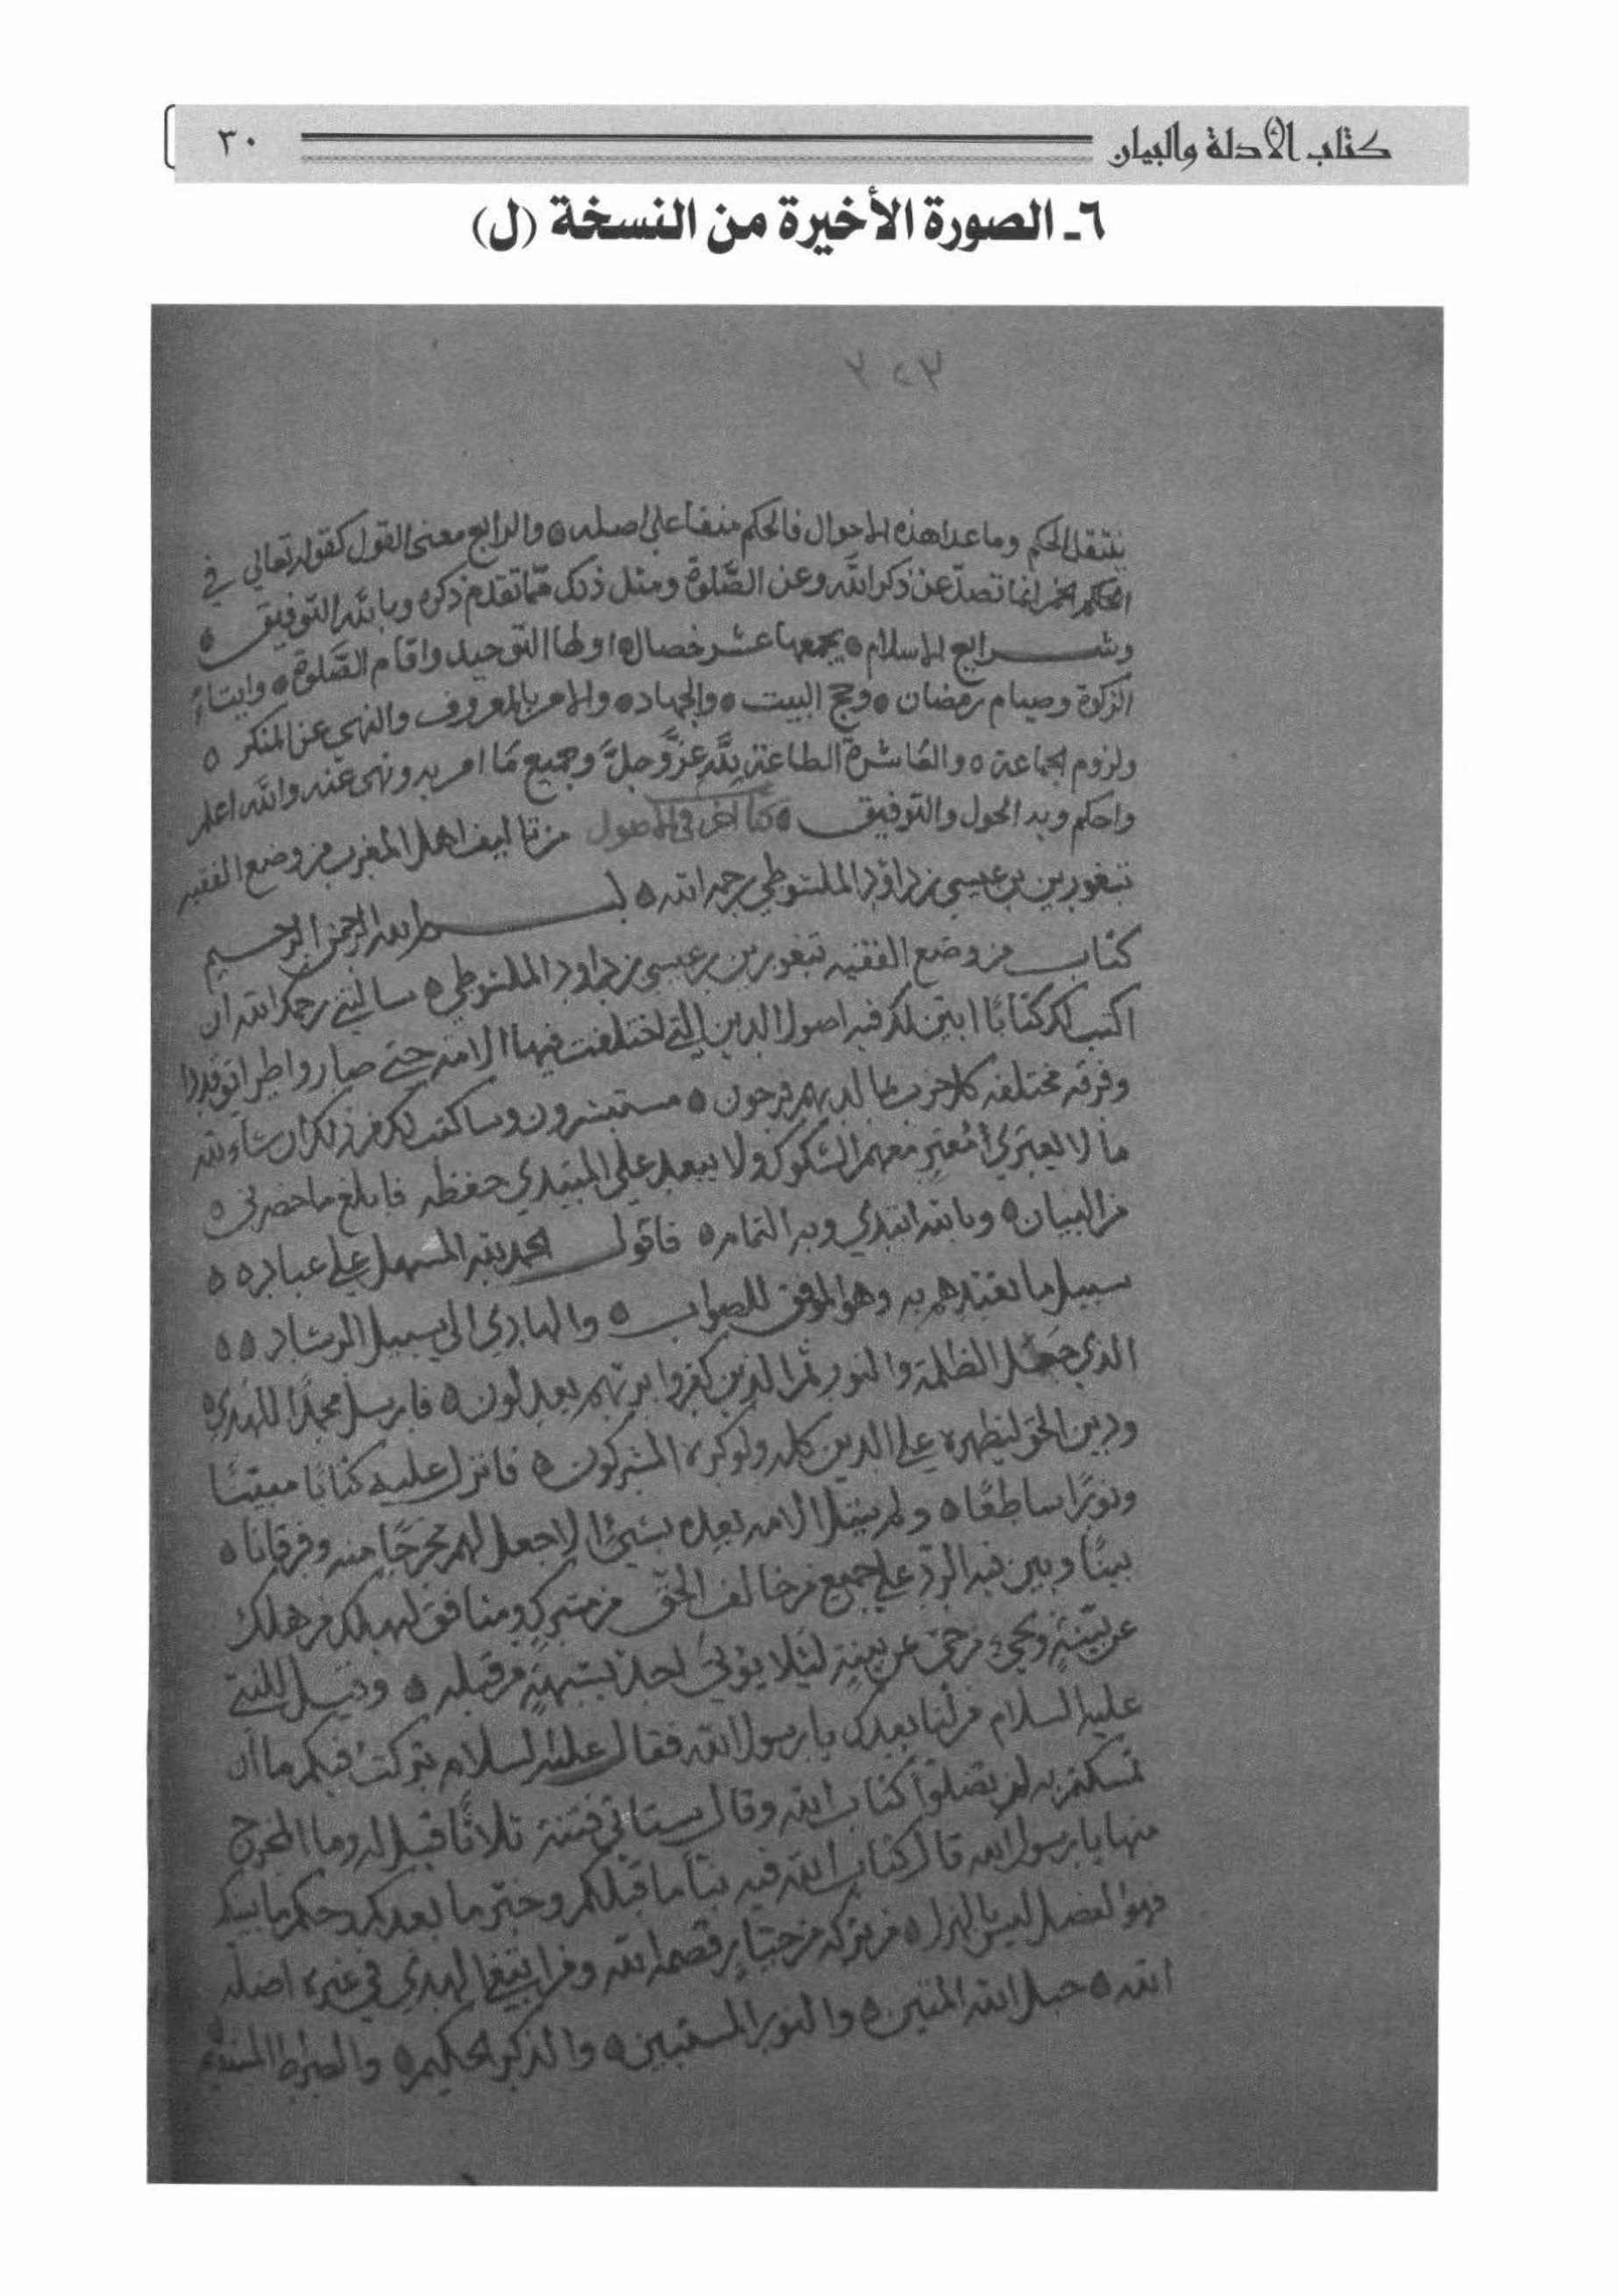 كتاب الأدلة والبيان ٣٠
٦ـ الصورة الأخيرة من النسخة (ل)
٣٢٣
ينتقل الحكم وما عدا هذه الاحوال فالحكم منقا على اصله ٥ والرابع معنى القول كقوله تعالى في
الحكم الخمر انما تصد عن ذكر الله وعن الصلوة ومثل ذلك مما تقدم ذكره وبالله التوفيق ٥
وشرايع الاسلام ٥ يجمعها عشر خصال ٥ اولها التوحيد واقام الصلوة ٥ وايتاء
الزكوة وصيام رمضان ٥ وحج البيت ٥ والجهاد ٥ والامر بالمعروف والنهي عن المنكر ٥
ولزوم الجماعة ٥ والعاشرة الطاعة لله عز وجل وجميع ما امر به ونهى عنه والله اعلم
واحكم وبه الحول والتوفيق ٥ كتاب اخر في الاصول من تاليف اهل المغرب من وضع الفقيه
تبغورين بن عيسى بن داود الملشوطي رحمه الله ٥ بسم الله الرحمن الرحيم
كتاب من وضع الفقيه تبغورين بن عيسى بن داود الملشوطي ٥ سالتني رحمك الله ان
اكتب لك كتابا ابين لك فيه اصول الدين التي اختلفت فيها الامة حتى صاروا طرايق قددا
وفرقه مختلفه كل حزب بما لديهم فرحون ٥ مستبشرون وساكتب لك من ذلك ان شاء الله
ما لا يعتري معهم الشكوك ولا يبعد على المبتدي حفظه فابلغ ما حضرني ٥
من البيان ٥ وبالله ابتدي وبه التمام ٥ فاقول الحمد لله المسهل على عباده ٥ ٥
سبيل ما تعبدهم به وهو الموفق للصواب ٥ والهادي الى سبيل الرشاد ٥ ٥
الذي جعل الظلمة والنور ثم الذين كفروا بربهم يعدلون ٥ فارسل محمدا للهدى
ودين الحق ليظهره على الدين كله ولو كره المشركون ٥ فانزل عليه كتابا مبينا
ونورا ساطعا ٥ ولم يبتل الامه بعده بشيئ الا جعل لهم مخرجا منه وفرقانا ٥
بينا وبين فيه الرد على جميع من خالف الحق من مشرك ومنافق ليهلك من هلك
عن بينة ويحيى من حي عن بينة لئلا يؤتى احد بشبهة من قبله ٥ وقيل للنبي
عليه السلام من لنا بعدك يا رسول الله فقال عليه السلام تركت فيكم ما ان
تمسكتم به لن تضلوا كتاب الله وقال ستاتي فتنة ثلاثا قيل له وما المخرج
منها يا رسول الله قال كتاب الله فيه نبا ما قبلكم وخبر ما بعدكم وحكم ما بينكم
فهو الفصل ليس بالهزل ٥ من تركه من جبار قصمه الله ومن ابتغى الهدى في غيره اضله
الله ٥ حبل الله المتين ٥ والنور المستبين ٥ والذكر الحكيم ٥ والصراط المستقيم